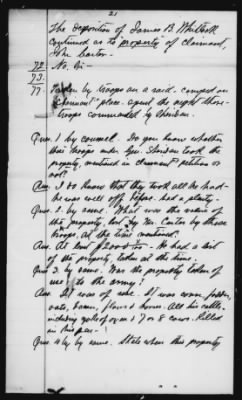 21
The deposition of James B. Whitlock
continued as to property of Claimant,
John Carter.
72. No. Sir-
73.
77. Taken by troops on a raid - camped on
Claimant's place - spent the night there -
troops commanded by Sheridan.
Ques. 1 by counsel. Do you know whether
the troops under Gen. Sheridan took the
property, mentioned in claimant's petition or
not?
Ans. I do know that they took all he had -
he was well off before - had a plenty.
Ques. 2. by same. What was the value of
the property, taken by Mr. Carter by those
troops, at the time mentioned.
Ans. At least $2000 - He had a lot
of the property, taken at the time.
Ques 3. by same. Was the property taken of
use to the army?
Ans. It was of use. It was corn, fodder,
oats, bacon, flour & horses. All his cattle,
including yoke of oxen & 7 or 8 cows. Killed
in his pen -
Ques 4. by same. State when this property